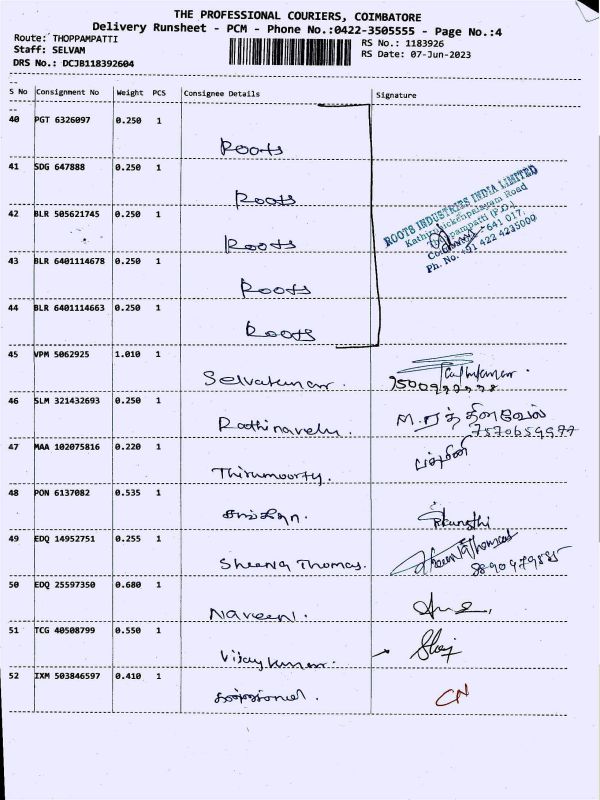 THE PROFESSIONAL COURIERS, COIMBATORE
Delivery Runsheet - PCM - Phone No.:0422-3505555 - Page No.:4
Route: THOPPAMPATTI
RS No.: 1183926
Staff: SELVAM
RS Date: 07-Jun-2023
DRS No.: DCJB118392604
S No Consignment No Weight PCS Consignee Details Signature
40 PGT 6326097 0.250 1
Roots
41 SDG 647888 0.250 1
Roots
ROOTS INDUSTRIES INDIA LIMITED
42 BLR 505621745 0.250 1
Roots
Road
641 017.
Ph. No. +91 422 4235000
43 BLR 6401114678 0.250 1
Roots
44 BLR 6401114663 0.250 1
Roots
45 VPM 5062925 1.010 1
Selvakumar.
46 SLM 321432693 0.250 1
Rathinavelu.
M. ரத்தினவேல்
47 MAA 102075816 0.220 1
Thirumoorty.
48 PON 6137082 0.535 1
49 EDQ 14952751 0.255 1
Sheena Thomas.
Sheena Thomas
50 EDQ 25597350 0.680 1
Naveen.
51 TCG 40508799 0.550 1
Vijaykumar.
52 IXM 503846597 0.410 1
CN